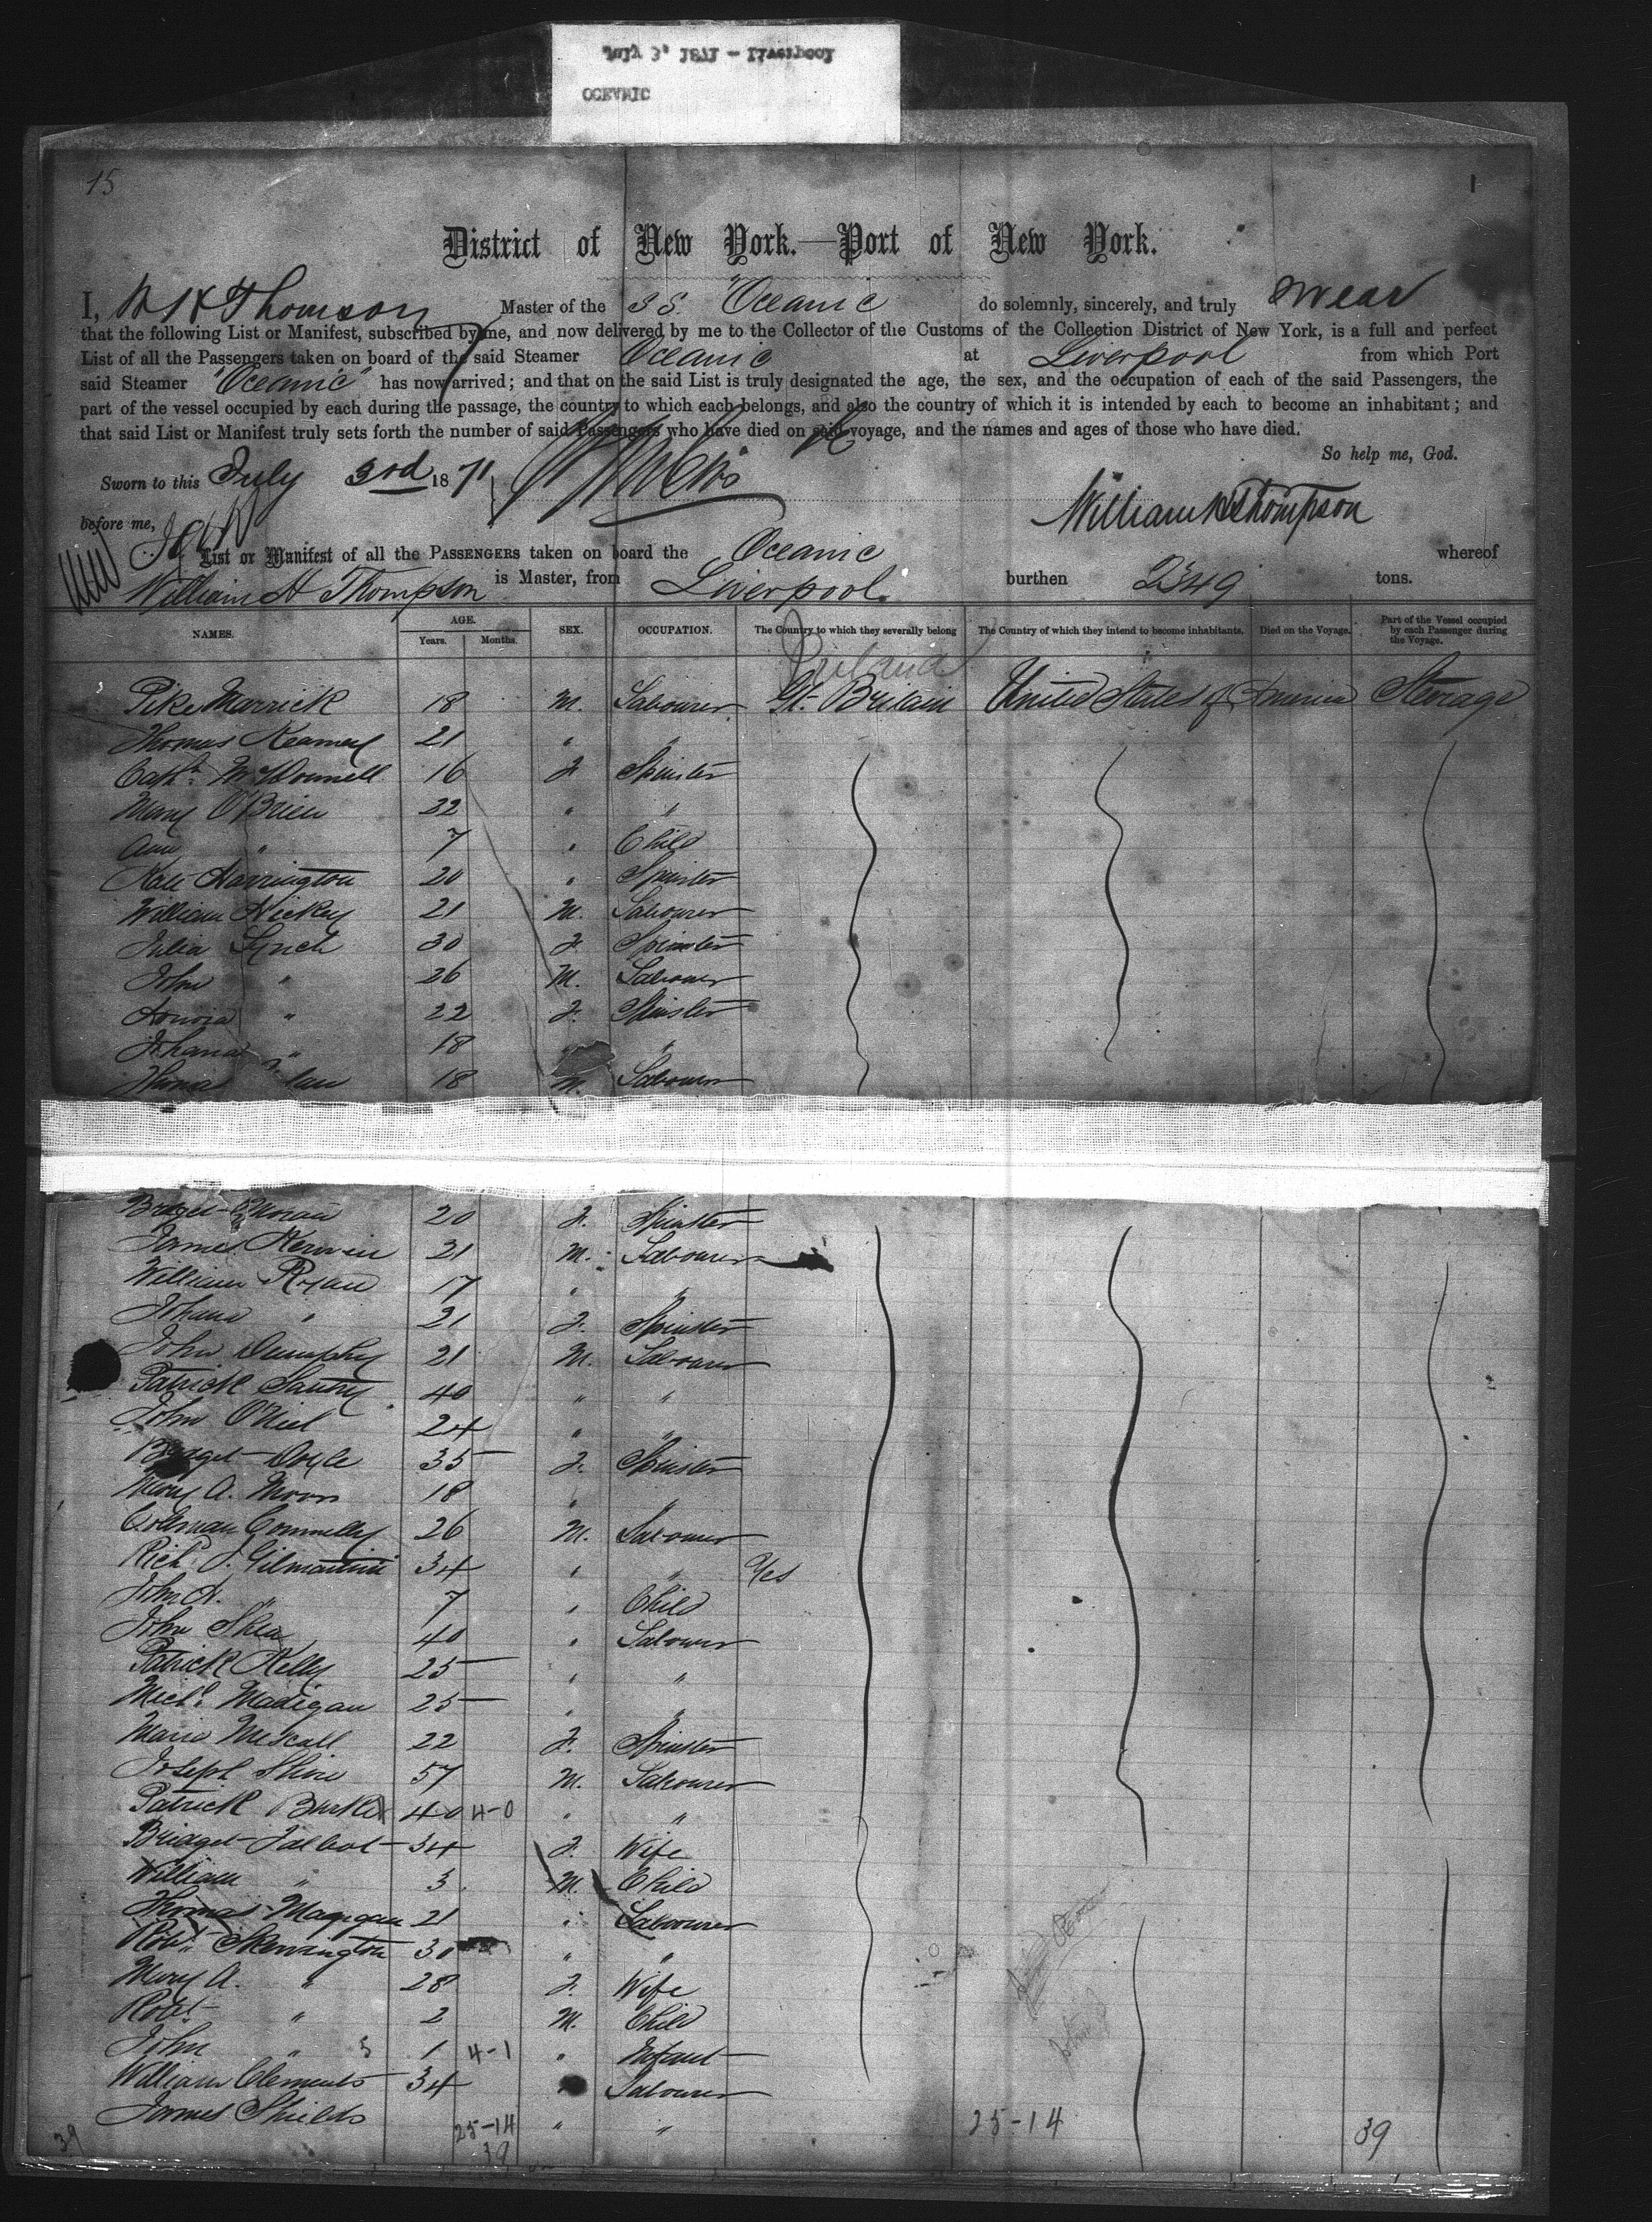 July 3, 1871 - Liverpool
OCEANIC
15
1
District of New York.—Port of New York.
I, W H Thomson Master of the S S. "Oceanic do solemnly, sincerely, and truly swear
that the following List or Manifest, subscribed by me, and now delivered by me to the Collector of the Customs of the Collection District of New York, is a full and perfect
List of all the Passengers taken on board of the said Steamer Oceanic at Liverpool from which Port
said Steamer "Oceanic" has now arrived; and that on the said List is truly designated the age, the sex, and the occupation of each of the said Passengers, the
part of the vessel occupied by each during the passage, the country to which each belongs, and also the country of which it is intended by each to become an inhabitant; and
that said List or Manifest truly sets forth the number of said Passengers who have died on said voyage, and the names and ages of those who have died.
So help me, God.
Sworn to this July 3rd 1871
before me,
William H Thompson
List or Manifest of all the PASSENGERS taken on board the Oceanic whereof
William H Thompson is Master, from Liverpool. burthen 2349 tons.
NAMES. AGE. Years. Months. SEX. OCCUPATION. The Country to which they severally belong The Country of which they intend to become inhabitants. Died on the Voyage. Part of the Vessel occupied by each Passenger during the Voyage.
Ireland
Pike Marrick 18 M. Labourer Gt. Britain United States of America Steerage
Thomas Kearney 21 " "
Cath. McDonnell 16 F. Spinster
Mary O'Brien 22 " "
Ann " 7 " Child
Kate Harrington 20 " Spinster
William Hickey 21 M. Labourer
Julia Lynch 30 F. Spinster
John " 26 M. Labourer
Honora " 22 F. Spinster
Johana " 18 "
Thomas 18 M. Labourer
Bridget Moran 20 F. Spinster
James Kerwin 21 M. Labourer
William Ryan 17 " "
Johana " 21 F. Spinster
John Dumphy 21 M. Labourer
Patrick 40 " "
John O'Niel 24 " "
Bridget Doyle 35 F. Spinster
Mary A. Moon 18 " "
Colman Connelly 26 M. Labourer
Rich. J. Gilmartin 34 " " Yes
John A. " 7 " Child
John Shea 40 " Labourer
Patrick Kelly 25 " "
Michl. Madigan 25 " "
Maria Mescall 22 F. Spinster
Joseph Shine 57 M. Labourer
Patrick Burke 40 4-0 " "
Bridget Talbot 34 F. Wife
William " 3 M. Child
Thomas 21 " Labourer
Robt. Skevington 30 " "
Mary A. " 28 F. Wife
Robt. " 2 M. Child
John " 1 4-1 " Infant
William Clements 34 " Labourer
James Shields " "
39 25-14 25-14 39
39